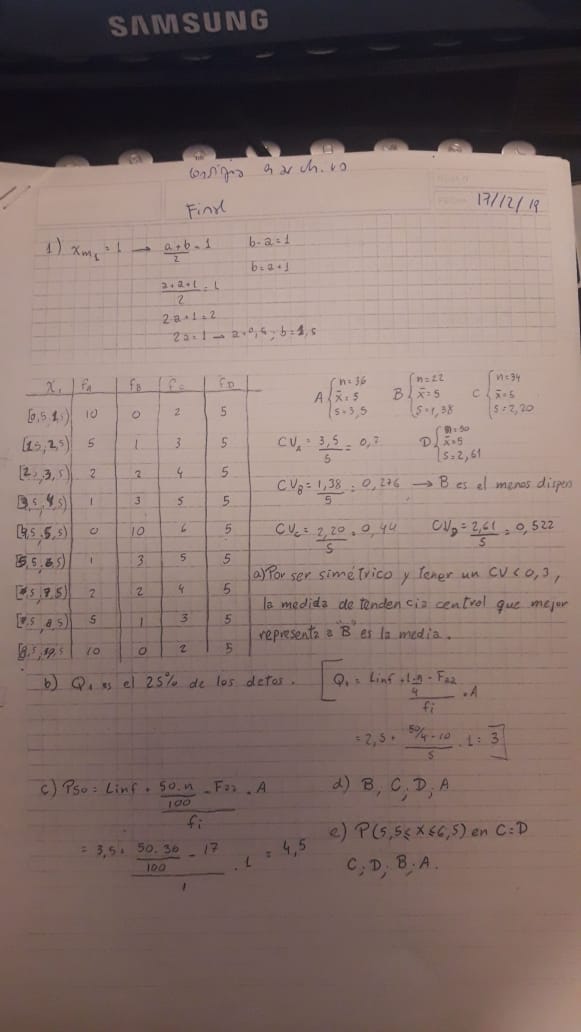 SAMSUNG
Final
17/12/19
1) Xm₁ = 1 → a+b/2 = 1 b-a=1
b=a+1
a+a+1/2 = 1
2a+1=2
2a=1 → a=0,5; b=1,5
Xi fA fB fC fD
[0,5 1,5) 10 0 2 5
[1,5, 2,5) 5 1 3 5
[2,5, 3,5) 2 2 4 5
[3,5, 4,5) 1 3 5 5
[4,5, 5,5) 0 10 6 5
[5,5, 6,5) 1 3 5 5
[6,5, 7,5) 2 2 4 5
[7,5, 8,5) 5 1 3 5
10 0 2 5
A { n=36 x̄=5 s=3,5
B { n=22 x̄=5 s=1,38
C { n=34 x̄=5 s=2,20
D { x̄=5 s=2,61
CVA = 3,5/5 = 0,7
CVB = 1,38/5 = 0,276 → B es el menos dispers
CVC = 2,20/5 = 0,44 CVD = 2,61/5 = 0,522
a) Por ser simétrico y tener un CV < 0,3,
la medida de tendencia central que mejor
representa a "B" es la media.
b) Q₁ es el 25% de los datos. [Q₁ = Linf + 1.n/4 - Faa / fi . A
= 2,5 + 50/4 - 10 / 5 . 1 = 3]
c) P50 = Linf + 50.n/100 - Faa / fi . A
= 3,5 + 50.36/100 - 17 / 1 . 1 = 4,5
d) B, C, D, A
e) P(5,5 ≤ X ≤ 6,5) en C=D
C; D; B; A.